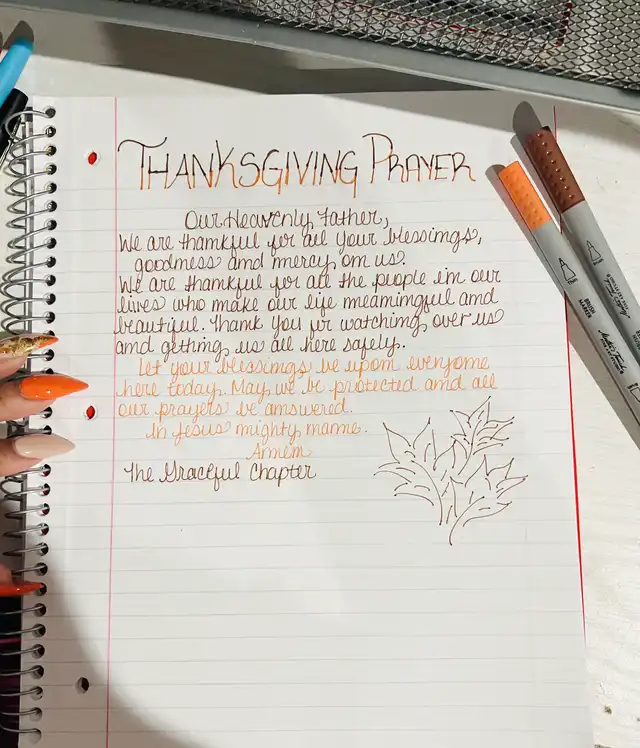 THANKSGIVING PRAYER
Our Heavenly Father,
We are thankful for all your blessings,
goodness and mercy on us.
We are thankful for all the people in our
lives who make our life meaningful and
beautiful. Thank You for watching over us
and getting us all here safely.
Let your blessings be upon everyone
here today. May we be protected and all
our prayers be answered.
In Jesus mighty name.
Amen
The Graceful Chapter